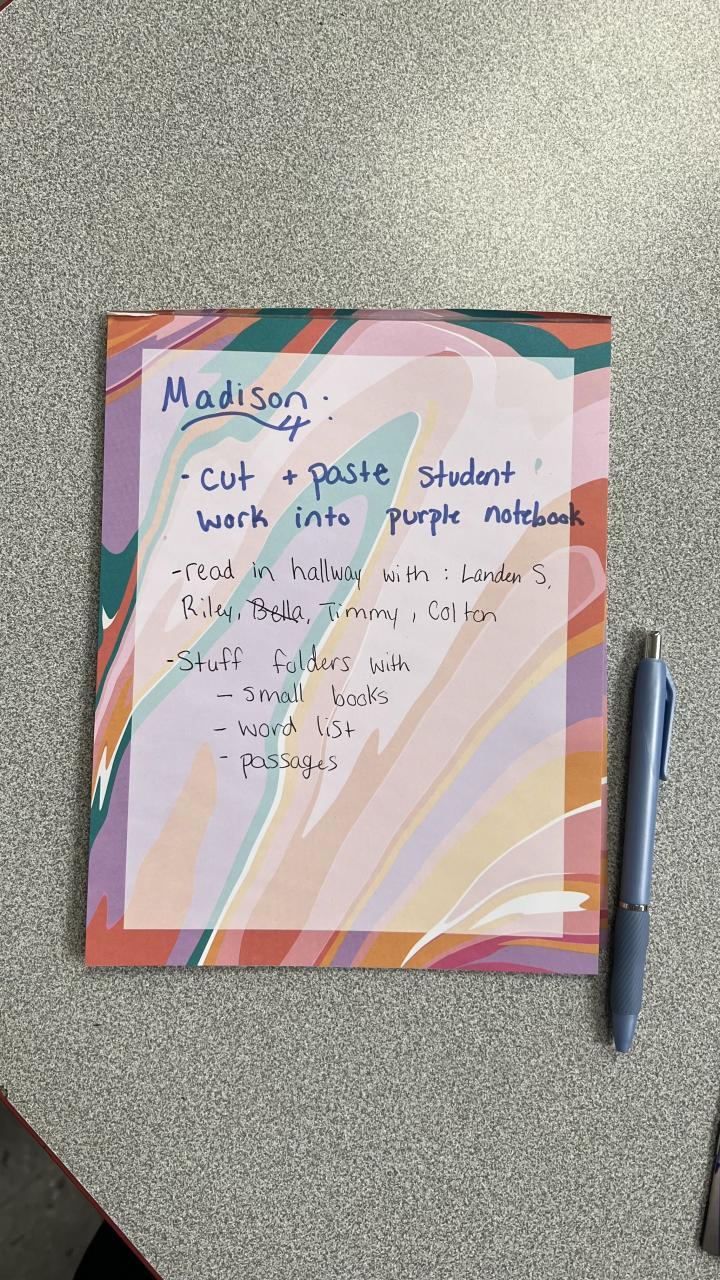 Madison:
- cut + paste student
work into purple notebook
-read in hallway with : Landen S,
Riley, Bella, Timmy, Colton
-Stuff folders with
- small books
- word list
- passages